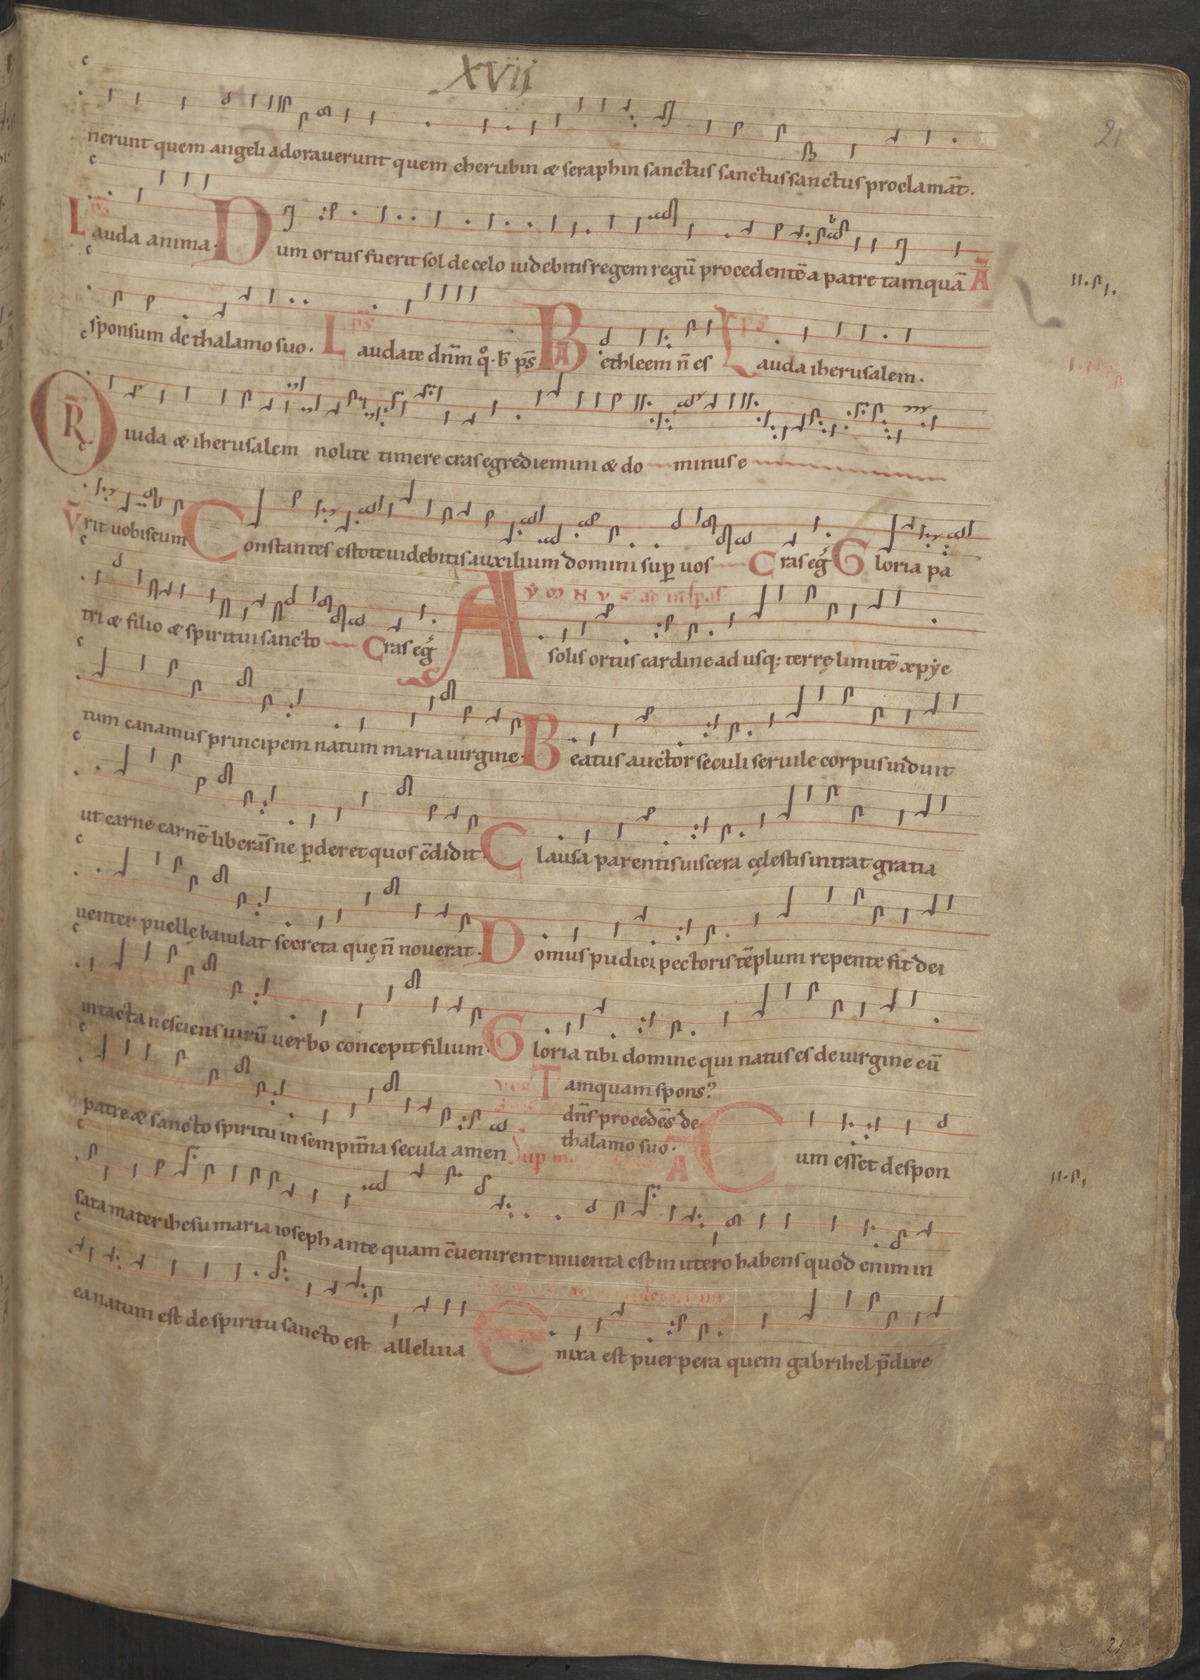 XVIJ
21
nerunt quem angeli adorauerunt quem cherubin æ seraphin sanctus sanctus sanctus proclamāt.
Lauda anima. Dum ortus fuerit sol de celo uidebitis regem regū procedentē a patre tamquā Ā
ps̄
sponsum de thalamo suo. Laudate dn̄m q̊. b̄ ps̄ Bethleem n̄ es Lauda iherusalem.
ps̄
A
R̄
O iuda æ iherusalem nolite timere cras egrediemini æ do minus e
V̄ rit uobiscum Constantes estote uidebitis auxilium domini sup̱ uos Cras eg̃ Gloria pa
tri æ filio æ spiritui sancto Cras eg̃ YMNVS ad uesp̱as
A solis ortus cardine ad usq; terrę limitē xp̄ye
tum canamus principem natum maria uirgine. Beatus auctor seculi seruile corpus induit
ut carne carnē liberās ne p̱deret quos c̄didit. Clausa parentis uiscera cęlestis intrat gratia
uenter puellę baiulat secreta quę n̄ nouerat. Domus pudici pectoris tēplum repente fit dei
intacta nesciens uirū uerbo concepit filium. Gloria tibi domine qui natus es de uirgine cū
Tamquam spons?
patre æ sancto spiritu in sempit̄na secula amen
dn̄s procedēs de
thalamo suo.
A Cum esset despon
sata mater ihesu maria ioseph ante quam c̄uenirent inuenta est in utero habens quod enim in
ea natum est de spiritu sancto est alleluia Enixa est puerpera quem gabrihel p̄dixe
21